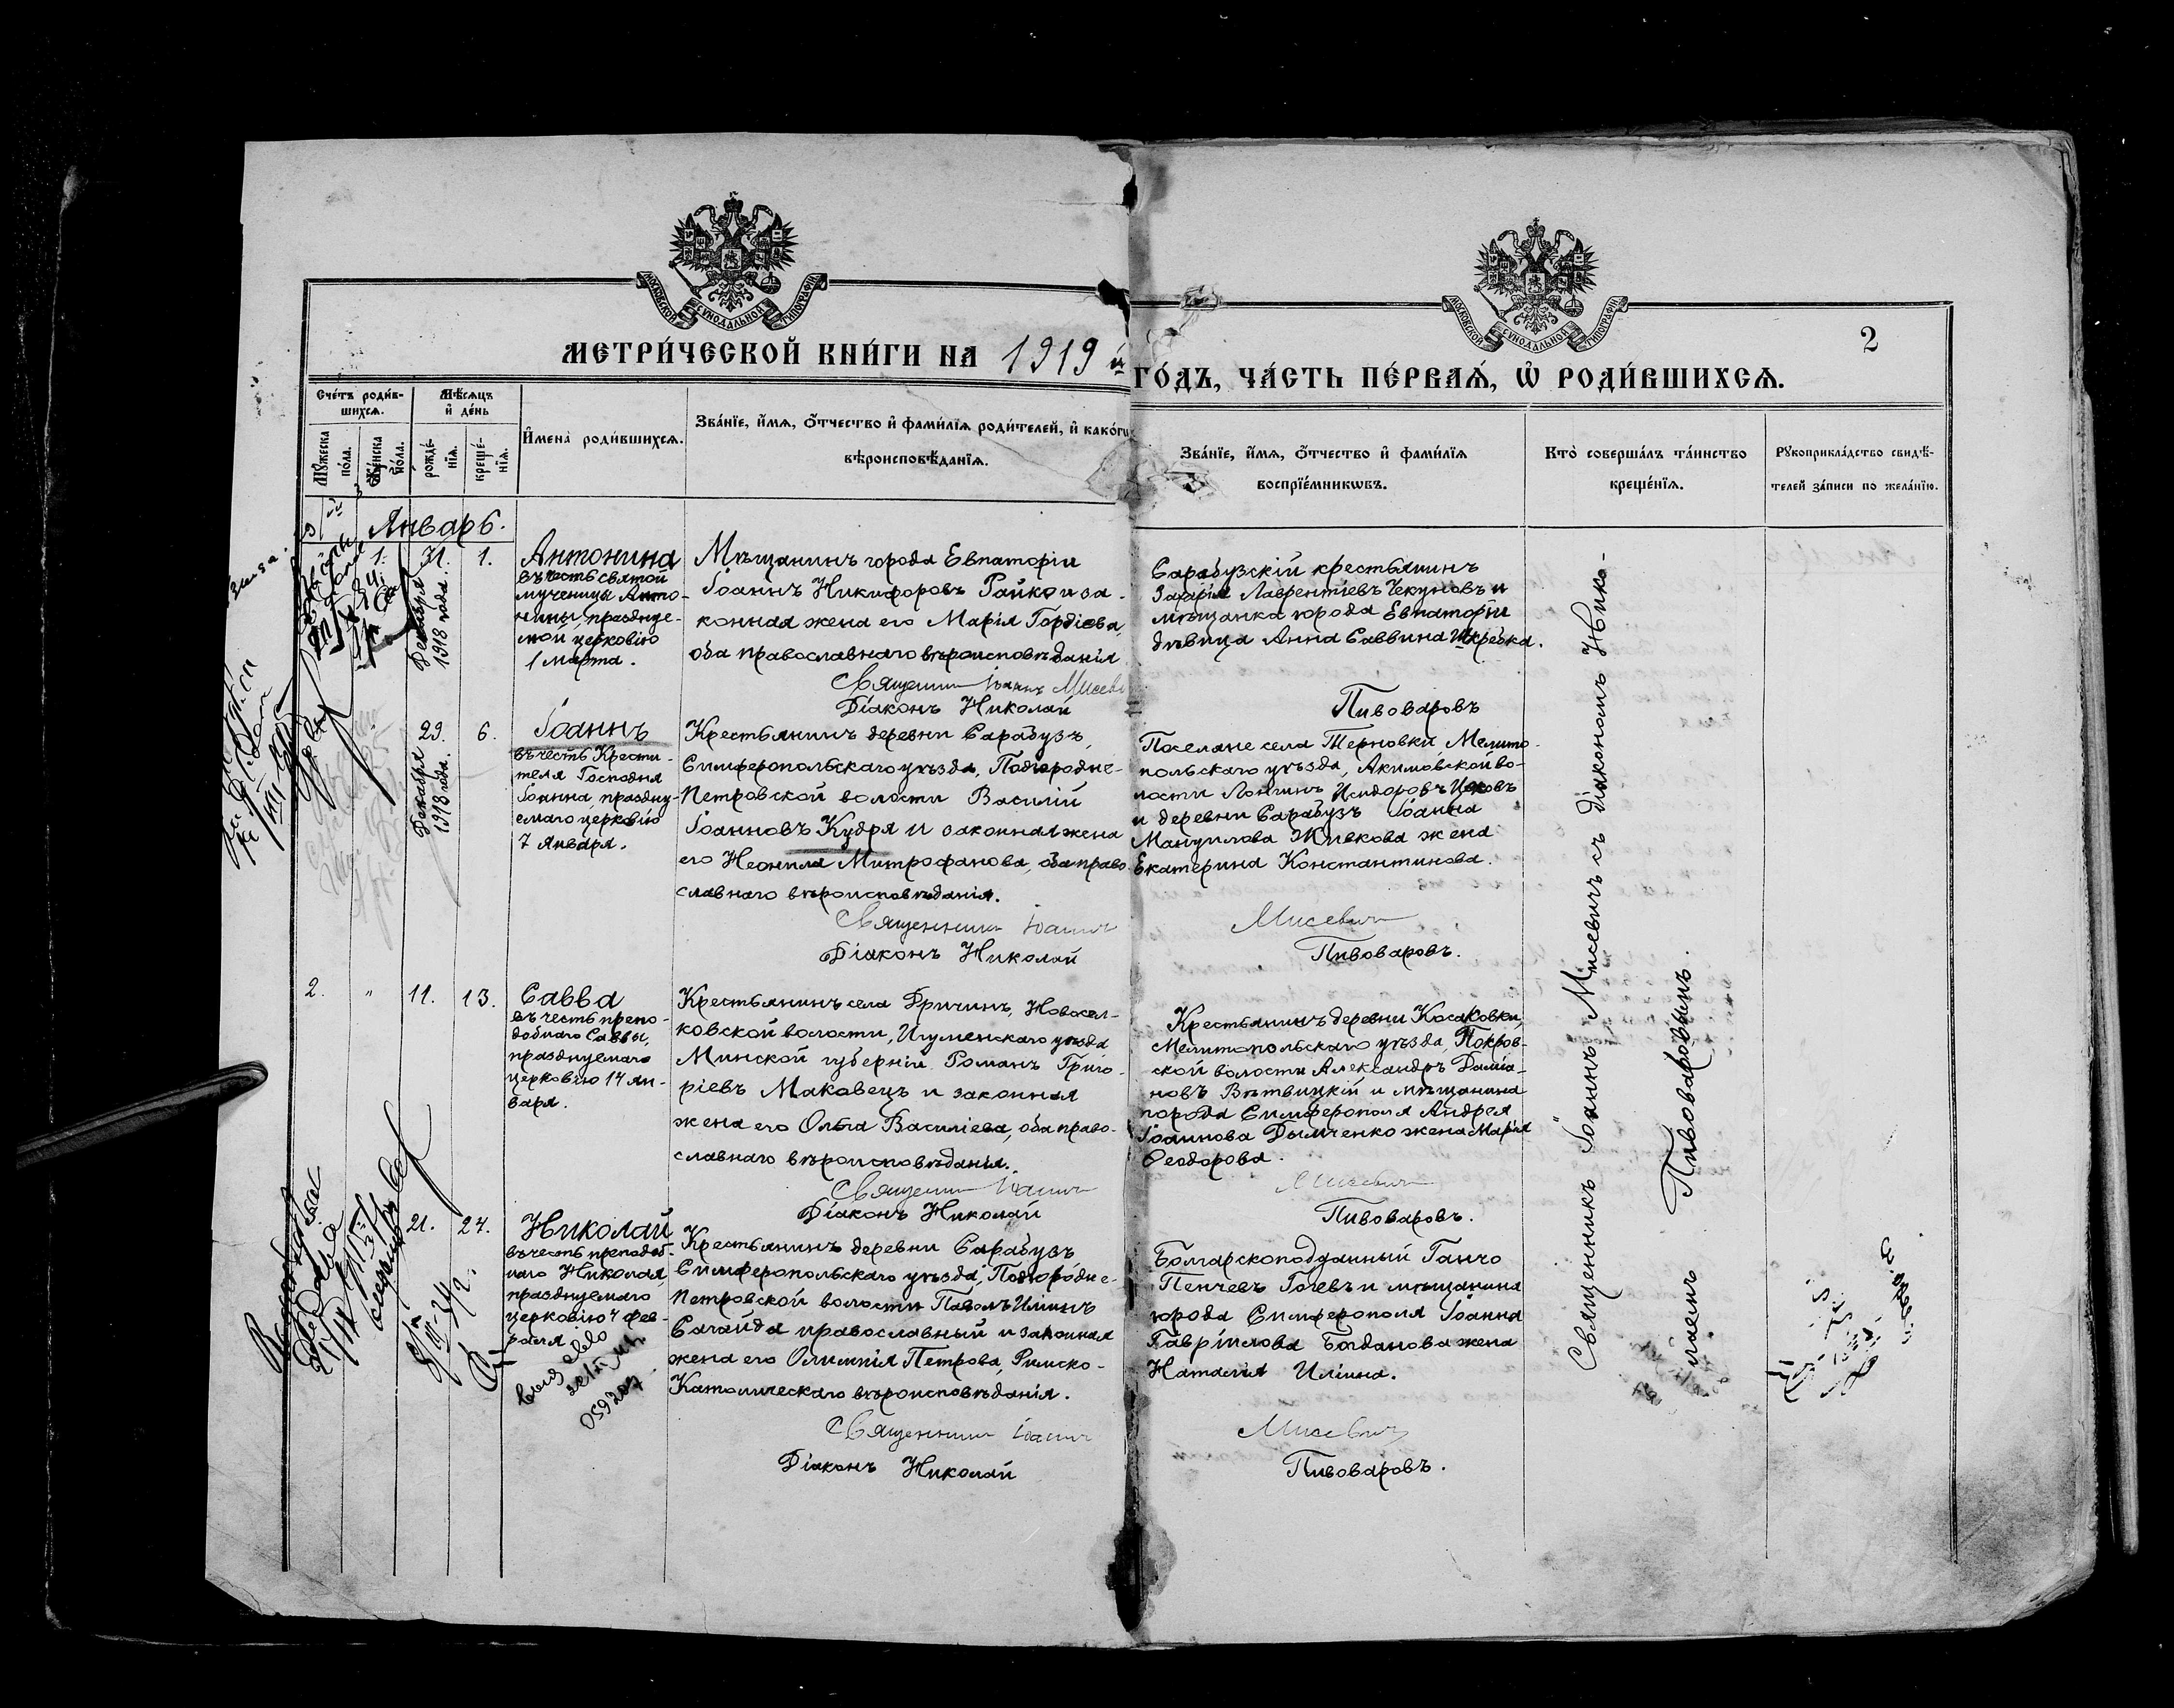 МОСКОВСКОЙ СѴНОДАЛЬНОЙ ТИПОГРАФІИ
МОСКОВСКОЙ СѴНОДАЛЬНОЙ ТИПОГРАФІИ
2
МЕТРИ́ЧЕСКОЙ КНИ́ГИ НА 1919 й
ГО́ДЪ, ЧА́СТЬ ПЕ́РВАѦ, Ѡ РОДИ́ВШИХСѦ.
Сче́тъ роди́в-
шихсѧ.
Мѣ́сѧцъ
и де́нь
Мꙋ́жеска
по́ла.
Же́нска
по́ла.
рожде́-
нїѧ.
креще́-
нїѧ.
Имена̀ роди́вшихсѧ.
Зва́нїе, и́мѧ, ѻ́тчество и фами́лїѧ роди́телей, и како́гѡ
вѣроисповѣ́данїѧ.
Зва́нїе, и́мѧ, ѻ́тчество и фами́лїѧ
воспрїе́мникѡвъ.
Кто̀ соверша́лъ та́инство
креще́нїѧ.
Рꙋкоприкла́дство свидѣ́-
телей за́писи по жела́нїю.
Январь.
1. 31. 1.
Декабря
1918 года.
Антонина
въ честь святой
мученицы Анто-
нины, празднуе-
мой церковію
1 марта.
Мѣщанинъ города Евпаторіи
Іоаннъ Никифоровъ Райко и за-
конная жена его Марія Гордіева,
оба православнаго вѣроисповѣданія
Священникъ Іоаннъ Мисеви
Діаконъ Николай
Сарабузскій крестьянинъ
Захарія Лаврентіевъ Чекуновъ и
мѣщанка города Евпаторіи
дѣвица Анна Саввина Шкребка.
Пивоваровъ
29. 6.
Декабря
1918 года.
Іоаннъ
въ честь Крести-
теля Господня
Іоанна, праздну-
емаго церковію
7 Января.
Крестьянинъ деревни Сарабузъ,
Симферопольскаго уѣзда, Подгородне-
Петровской волости Василій
Іоанновъ Кудря и законная жена
его Неонила Митрофанова, оба право
славнаго вѣроисповѣданія.
Священникъ Іоаннъ
Діаконъ Николай
Поселяне села Терновки, Мелито-
польскаго уѣзда, Акимовской во-
лости Лонгинъ Исидоровъ
и деревни Сарабузъ Іоанна
Мануилова Живкова жена
Екатерина Константинова.
Мисевичъ
Пивоваровъ.
2. " 11. 13.
Савва
въ честь препо-
добнаго Саввы,
празднуемаго
церковію 14 Ян-
варя.
Крестьянинъ села Гричинъ, Новосел-
ковской волости, Игуменскаго уѣзда
Минской губерніи Романъ Григо-
ріевъ Маковецъ и законная
жена его Ольга Василіева, оба право-
славнаго вѣроисповѣданія.
Священникъ Іоаннъ
Діаконъ Николай
Крестьянинъ деревни Косаковки,
Мелитопольскаго уѣзда, Покров-
ской волости Александръ Даміа-
новъ Вѣтвицкій и мѣщанина
города Симферополя Андрея
Іоаннова Дымченко жена Марія
Ѳеодорова.
Мисевичъ
Пивоваровъ.
21. 24.
Николай
въ честь преподоб-
наго Николая,
празднуемаго
церковію 4 фев-
раля
Крестьянинъ деревни Сарабузъ
Симферопольскаго уѣзда, Подгородне-
Петровской волости Павелъ Ильинъ
Сагайда православный и законная
жена его Олимпія Петрова, Римско-
Католическаго вѣроисповѣданія.
Священникъ Іоаннъ
Діаконъ Николай
Болгарскоподданный Ганчо
Пенчевъ Гочевъ и мѣщанина
города Симферополя Іоанна
Гавріилова Богданова жена
Наталія Иліина.
Мисевичъ
Пивоваровъ.
Священникъ Іоаннъ Мисевичъ съ діакономъ Нико-
лаемъ Пивоваровымъ.